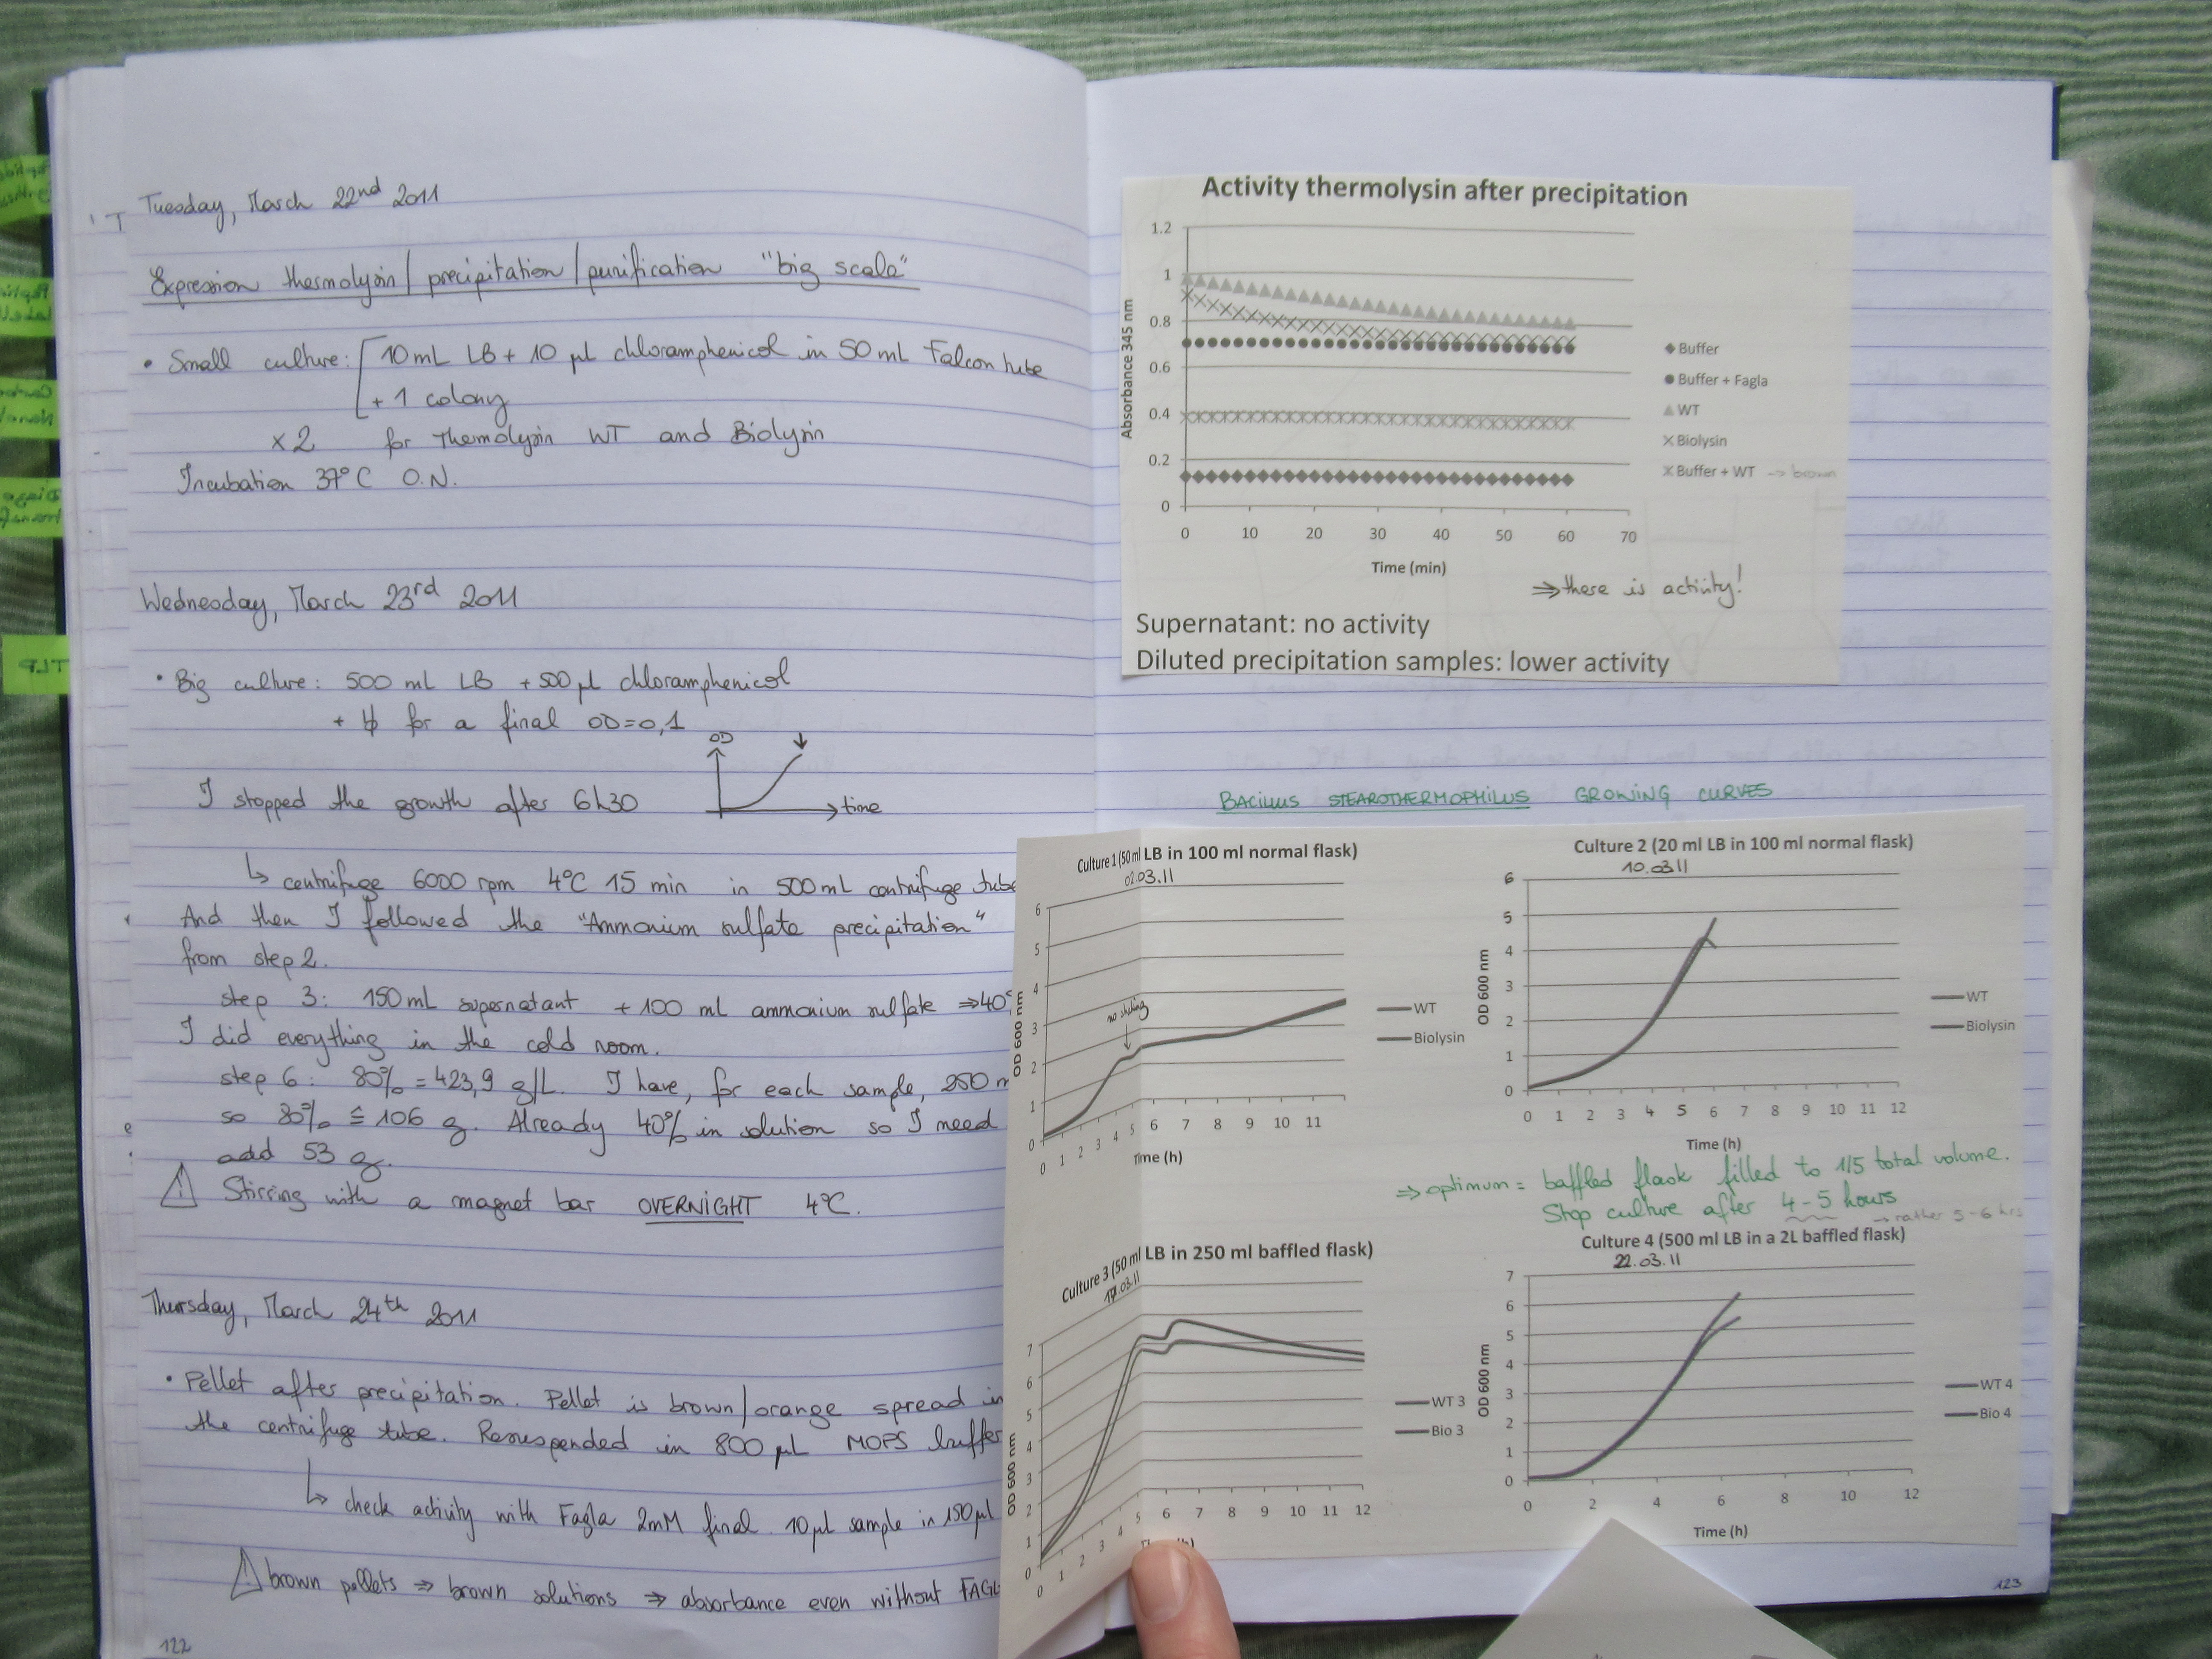 Tuesday, March 22nd 2011
Expression thermolysin / precipitation / purification "big scale"
• Small culture: 10 mL LB + 10 µl chloramphenicol in 50 mL Falcon tube
+ 1 colony
x2 for Thermolysin WT and Biolysin
Incubation 37°C O.N.
Wednesday, March 23rd 2011
• Big culture: 500 mL LB + 500 µl chloramphenicol
+ for a final OD=0,1
OD
I stopped the growth after 6h30
time
↳ centrifuge 6000 rpm 4°C 15 min in 500 mL centrifuge tube
And then I followed the "Ammonium sulfate precipitation"
from step 2.
step 3: 150 mL supernatant + 100 ml ammonium sulfate ⇒ 40
I did everything in the cold room.
step 6: 80% = 423,9 g/L. I have, for each sample, 250 m
so 80% ≙ 106 g. Already 40% in solution so I need
add 53 g.
⚠ Stirring with a magnet bar OVERNIGHT 4°C.
Thursday, March 24th 2011
• Pellet after precipitation. Pellet is brown/orange spread in
the centrifuge tube. Resuspended in 800 µL MOPS buffer
↳ check activity with Fagla 2mM final. 10 µl sample in 150 µl
⚠ brown pellets ⇒ brown solutions ⇒ absorbance even without FAGL
122
TLP
Activity thermolysin after precipitation
1.2
1
0.8
0.6
0.4
0.2
0
Absorbance 345 nm
0 10 20 30 40 50 60 70
Time (min)
Buffer
Buffer + Fagla
WT
Biolysin
Buffer + WT → brown
⇒ there is activity!
Supernatant: no activity
Diluted precipitation samples: lower activity
BACILLUS STEAROTHERMOPHILUS GROWING CURVES
Culture 1 (50 ml LB in 100 ml normal flask)
02.03.11
6
5
4
3
2
1
0
OD 600 nm
no shaking
0 1 2 3 4 5 6 7 8 9 10 11
Time (h)
WT
Biolysin
Culture 2 (20 ml LB in 100 ml normal flask)
10.03.11
6
5
4
3
2
1
0
OD 600 nm
0 1 2 3 4 5 6 7 8 9 10 11 12
Time (h)
WT
Biolysin
⇒ optimum = baffled flask filled to 1/5 total volume.
Stop culture after 4-5 hours
→ rather 5-6 hrs
Culture 3 (50 ml LB in 250 ml baffled flask)
17.03.11
7
6
5
4
3
2
1
0
OD 600 nm
0 1 2 3 4 5 6 7 8 9 10 11 12
WT 3
Bio 3
Culture 4 (500 ml LB in a 2L baffled flask)
22.03.11
7
6
5
4
3
2
1
0
OD 600 nm
0 2 4 6 8 10 12
Time (h)
WT 4
Bio 4
123